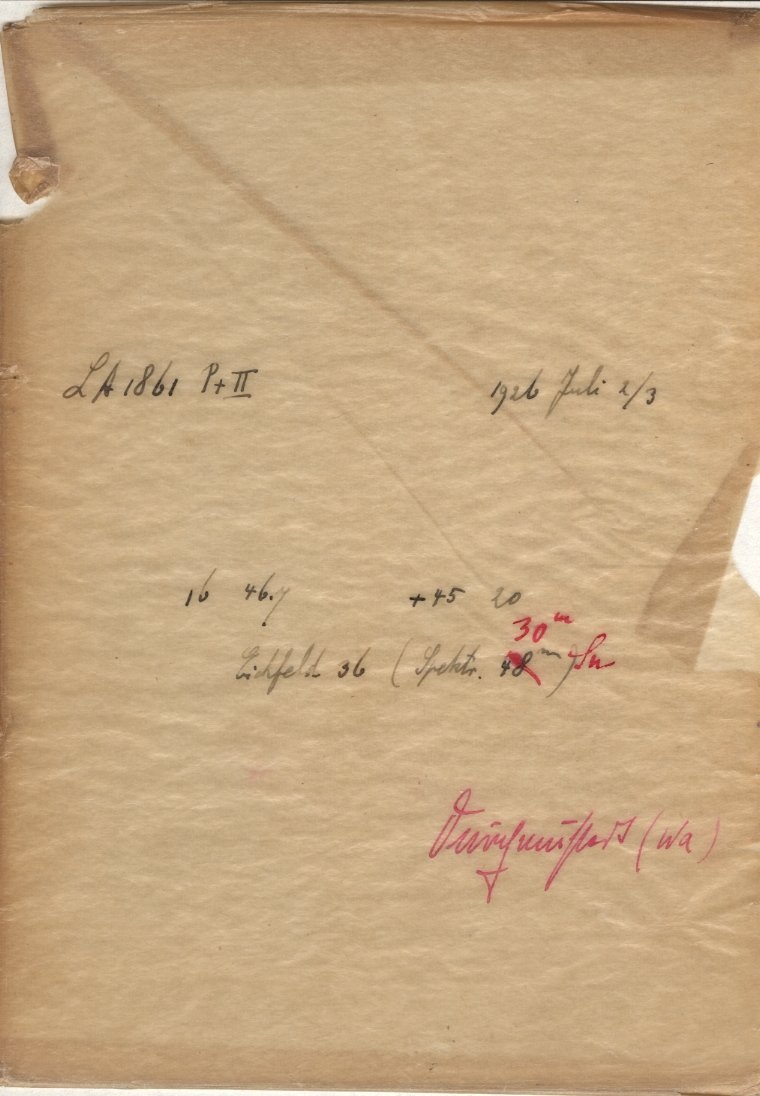 LA 1861 P+II 1926 Juli 2/3
16 46.7 +45 20
30ᵐ
Eichfeld 36 (Spektr. 48ᵐ) Sn
Durchmustert (Wa)